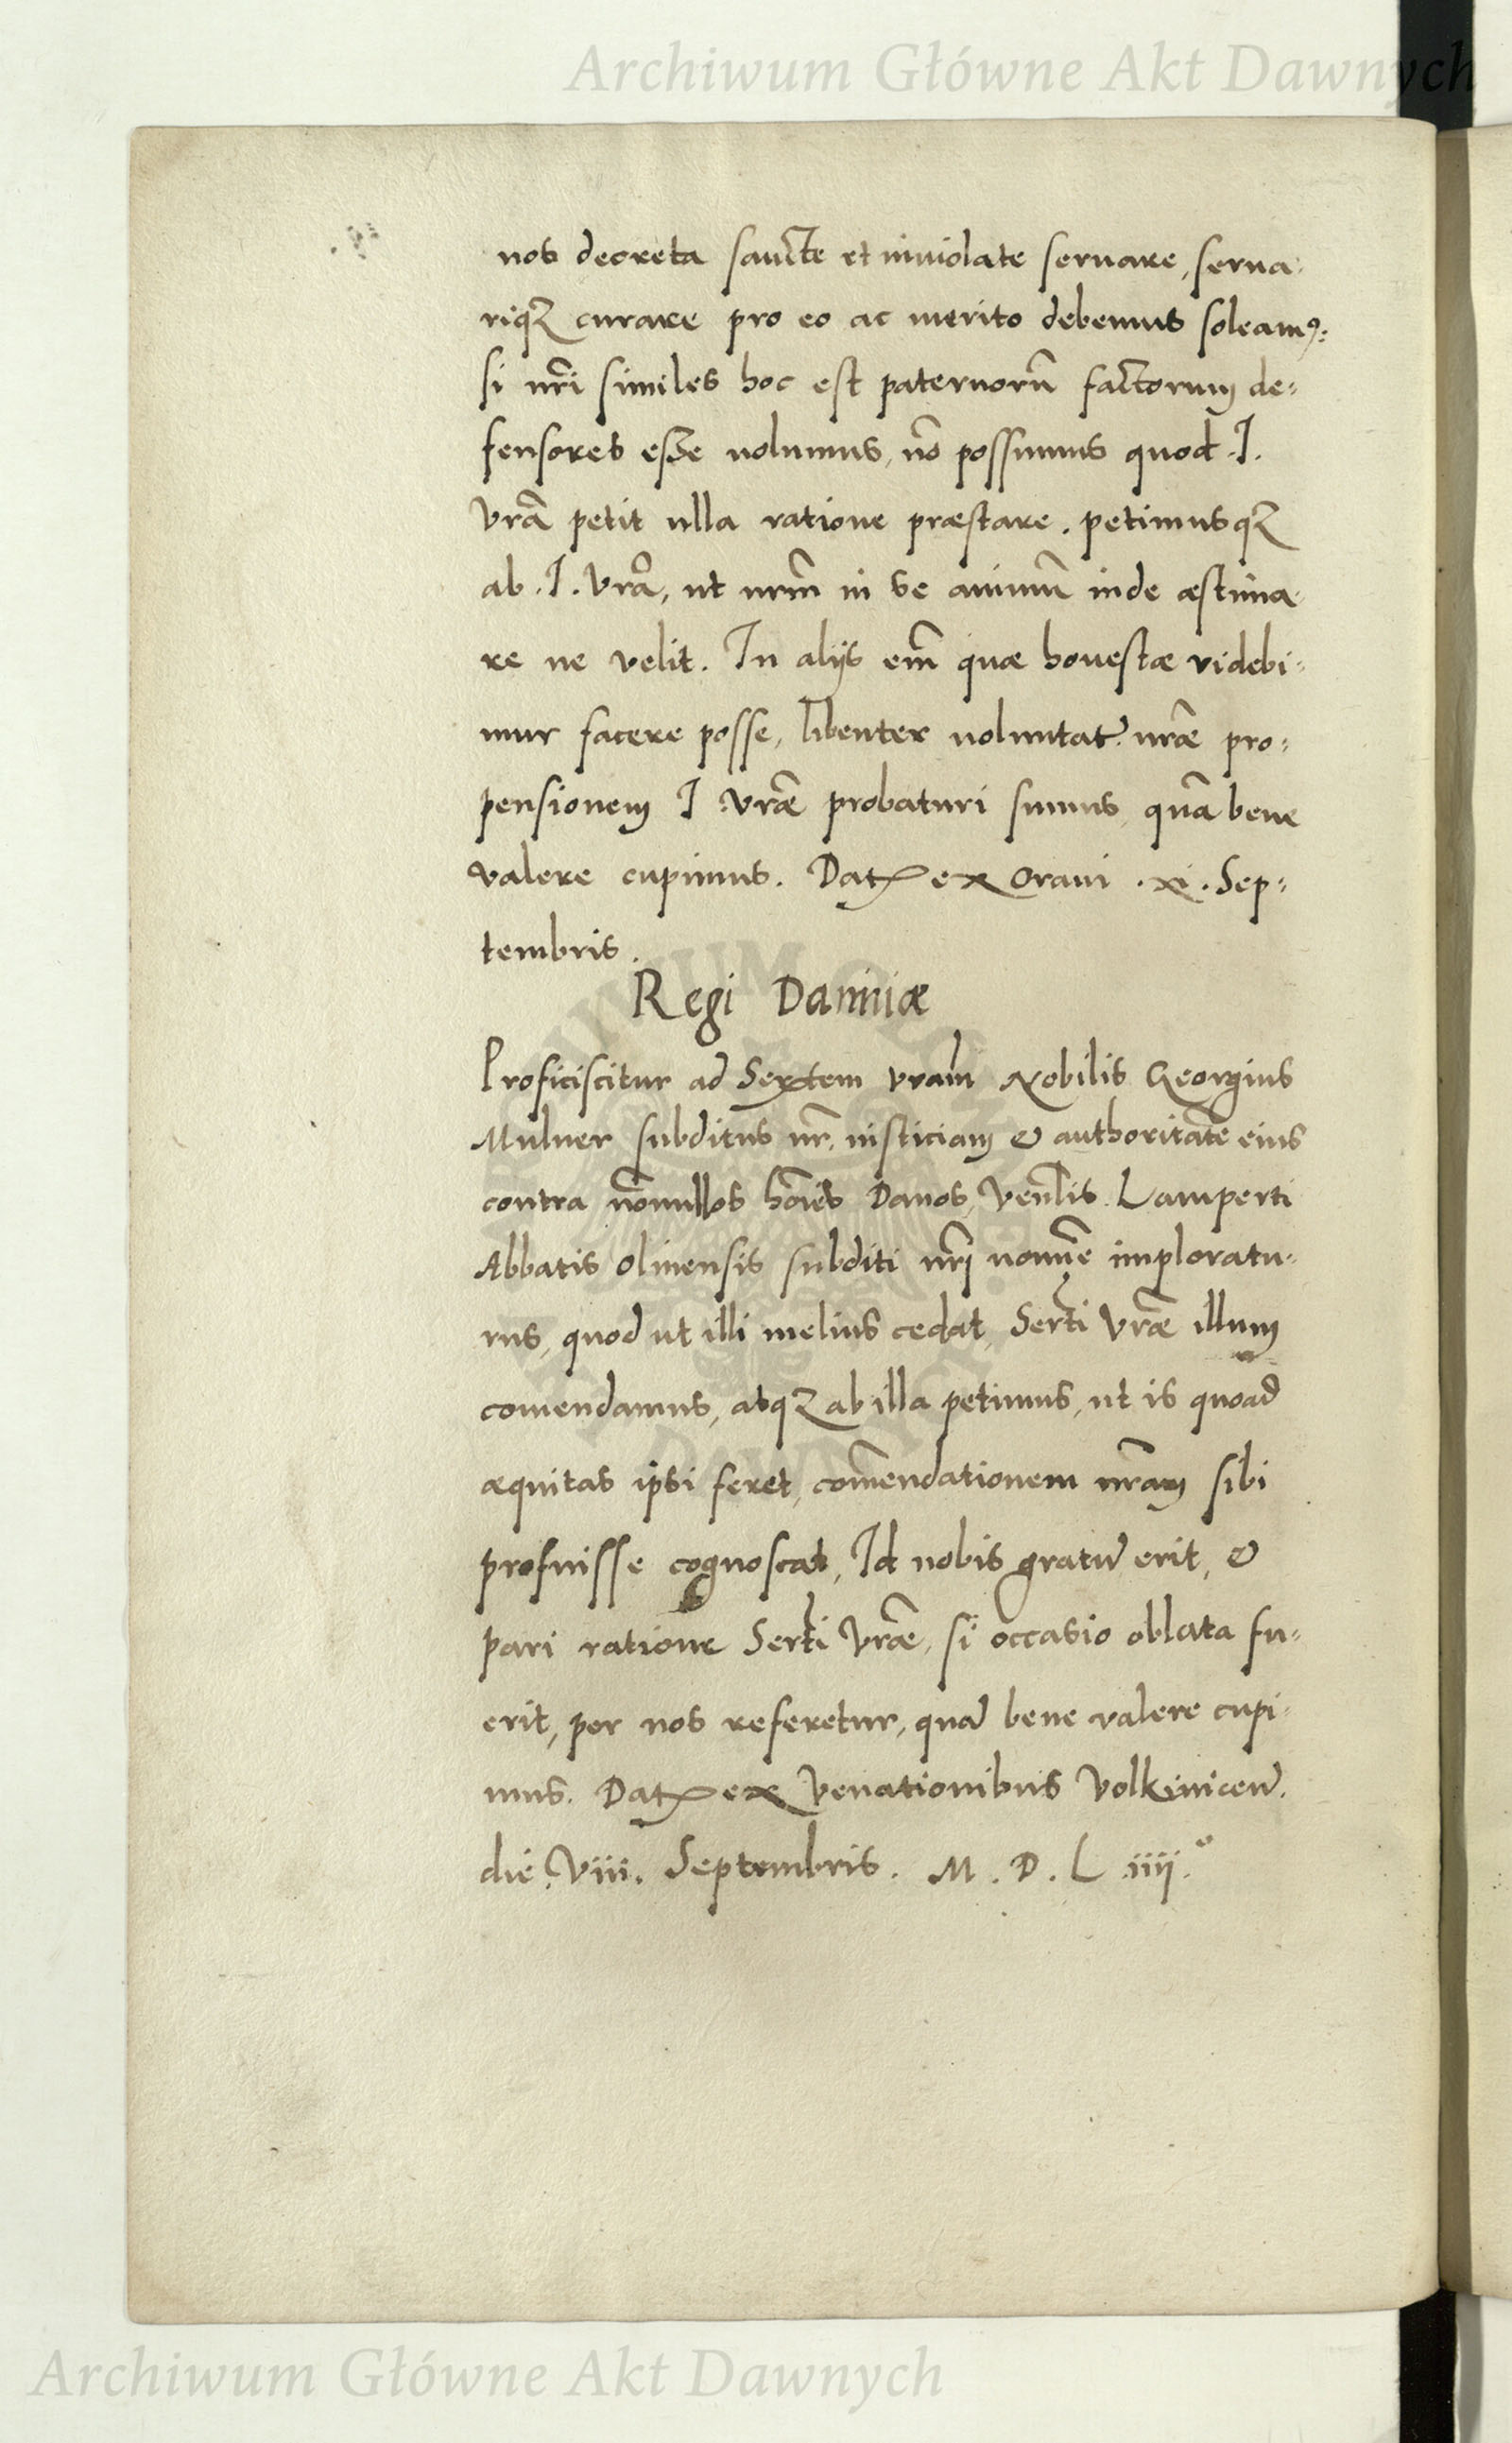 Archiwum Główne Akt Dawnych
nos decreta sancte et inuiolate seruare, serua-
riq₃ curare pro eo ac merito debemus soleamꝰ:
si nr̃i similes hoc est paternorũ factorum de-
fensores esse uolumus, nõ possumus quod .I.
Vrã petit ulla ratione præstare. petimusq₃
ab .I. Vrã, ut nrm̃ in se animũ inde æstima-
re ne velit. In alijs em̃ quæ honestæ videbi-
mur facere posse, libenter uoluntat. nræ̃ pro-
pensionem I Vræ̃ probaturi sumus, quã bene
valere cupimus. Dat ex Orani .xi. Sep-
tembris.
Regi Danniæ
Proficiscitur ad Serx̃tem vram̃ Nobilis Georgius
Mulner subditus nr̃, iusticiam & authoritatẽ eius
contra nõnullos hoĩes Danos, Venl̃is Lamperti
Abbatis Oliuensis subditi nr̃i nomĩe imploratu-
rus, quod ut illi melius cedat, Sert̃i Vræ̃ illum
comendamus, atq₃ ab illa petimus, ut is quoad
æquitas ipsi feret, com̃endationem nr̃am sibi
profuisse cognoscat, Id nobis gratũ erit, &
pari ratione Sert̃i Vræ̃, si occasio oblata fu-
erit, per nos referetur, quã bene valere cupi-
mus. Dat ex Venationibus Volkinicen̄.
die Viii. Septembris. M. D. L .iiij.º
Archiwum Główne Akt Dawnych